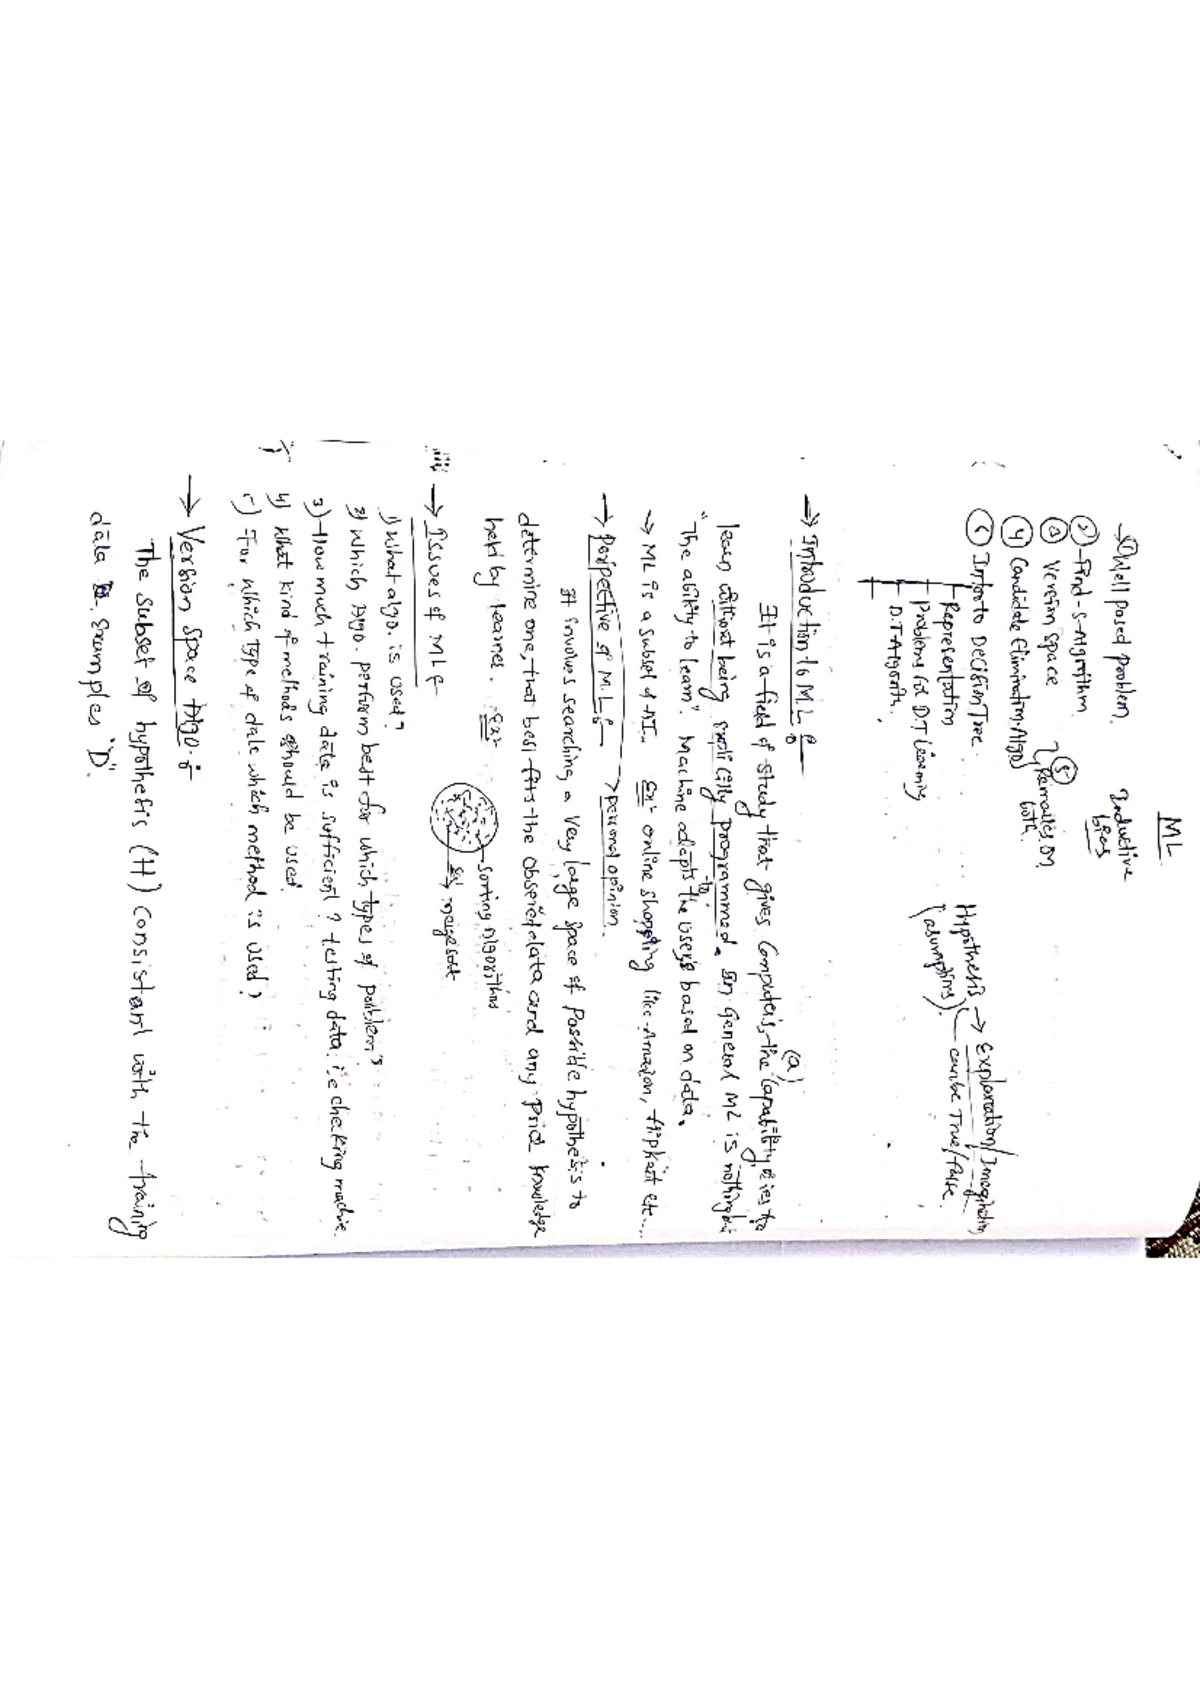 ML
→① Well posed problem. Inductive bias
② Find-s-Algorithm
③ Version space ⑤ Remarks on both.
④ Candidate Elimination Algo
⑥ Intro to Decision Tree.
Representation
Problems for D.T Learning
D.T Algorith.
Hypothesis → Explanation/Imagination
(asumptions) can be True/false.
→ Introduction to M.L :-
It is a field of study that gives Computers the (a) Capability to
learn without being explicitly programmed. In General ML is nothing but
"The ability to learn". Machine adepts the users based on data.
→ ML is a subset of AI. Ex:- online shopping like Amazon, flipkart etc...
→ Perpective of M.L :- → personal opinion.
It involves searching a very large space of Possible hypothesis to
determine one, that best fits the observed data and any Prior knowledge
held by learner. Ex:-
sorting Algorithms
Ex → mergesort
→ Issues of ML :-
1) What algo. is used?
2) Which Algo. perform best for which types of
3) How much training data is sufficient? testing data. i.e checking machine.
4) What kind of methods should be used.
5) For which type of data which method is used?
→ Version space Algo :-
The subset of hypothesis (H) Consistant with the training
data Examples "D".